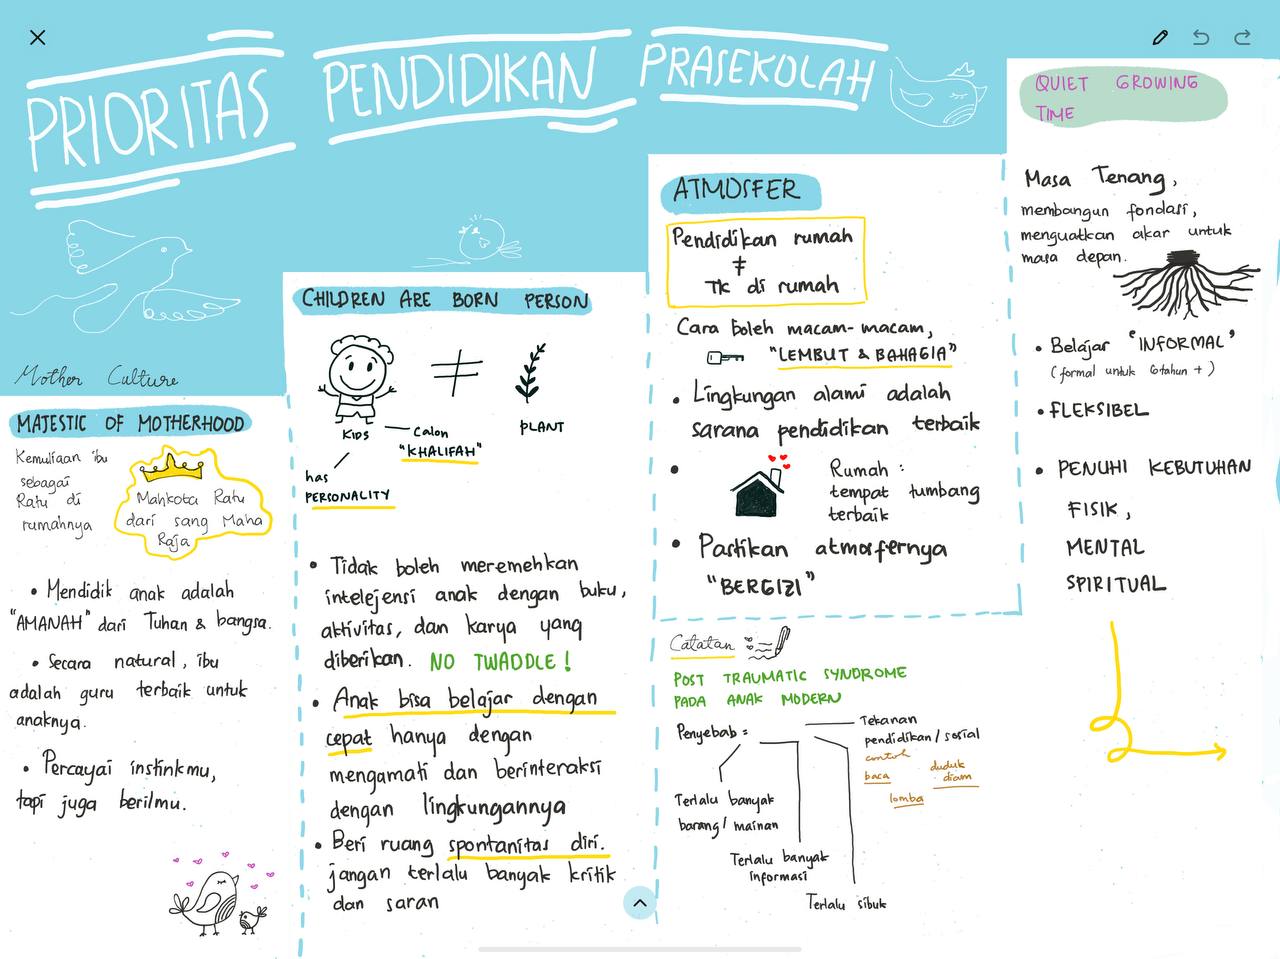 PRIORITAS PENDIDIKAN PRASEKOLAH
Mother Culture
MAJESTIC OF MOTHERHOOD
Kemuliaan ibu
sebagai
Ratu di
rumahnya
Mahkota Ratu
dari sang Maha
Raja
• Mendidik anak adalah
"AMANAH" dari Tuhan & bangsa.
• Secara natural, ibu
adalah guru terbaik untuk
anaknya.
• Percayai instinkmu,
tapi juga berilmu.
CHILDREN ARE BORN PERSON
≠
KIDS
Calon
"KHALIFAH"
PLANT
has
PERSONALITY
• Tidak boleh meremehkan
intelejensi anak dengan buku,
aktivitas, dan karya yang
diberikan. NO TWADDLE!
• Anak bisa belajar dengan
cepat hanya dengan
mengamati dan berinteraksi
dengan lingkungannya
• Beri ruang spontanitas diri.
jangan terlalu banyak kritik
dan saran
ATMOSFER
Pendidikan rumah
≠
TK di rumah
Cara boleh macam-macam,
"LEMBUT & BAHAGIA"
• Lingkungan alami adalah
sarana pendidikan terbaik
• Rumah :
tempat tumbang
terbaik
• Pastikan atmosfernya
"BERGIZI"
Catatan
POST TRAUMATIC SYNDROME
PADA ANAK MODERN
Penyebab =
Tekanan
pendidikan/sosial
contoh
baca
duduk
diam
lomba
Terlalu banyak
barang/mainan
Terlalu banyak
informasi
Terlalu sibuk
QUIET GROWING
TIME
Masa Tenang,
membangun fondasi,
menguatkan akar untuk
masa depan.
• Belajar "INFORMAL"
(formal untuk 6tahun +)
• FLEKSIBEL
• PENUHI KEBUTUHAN
FISIK,
MENTAL
SPIRITUAL